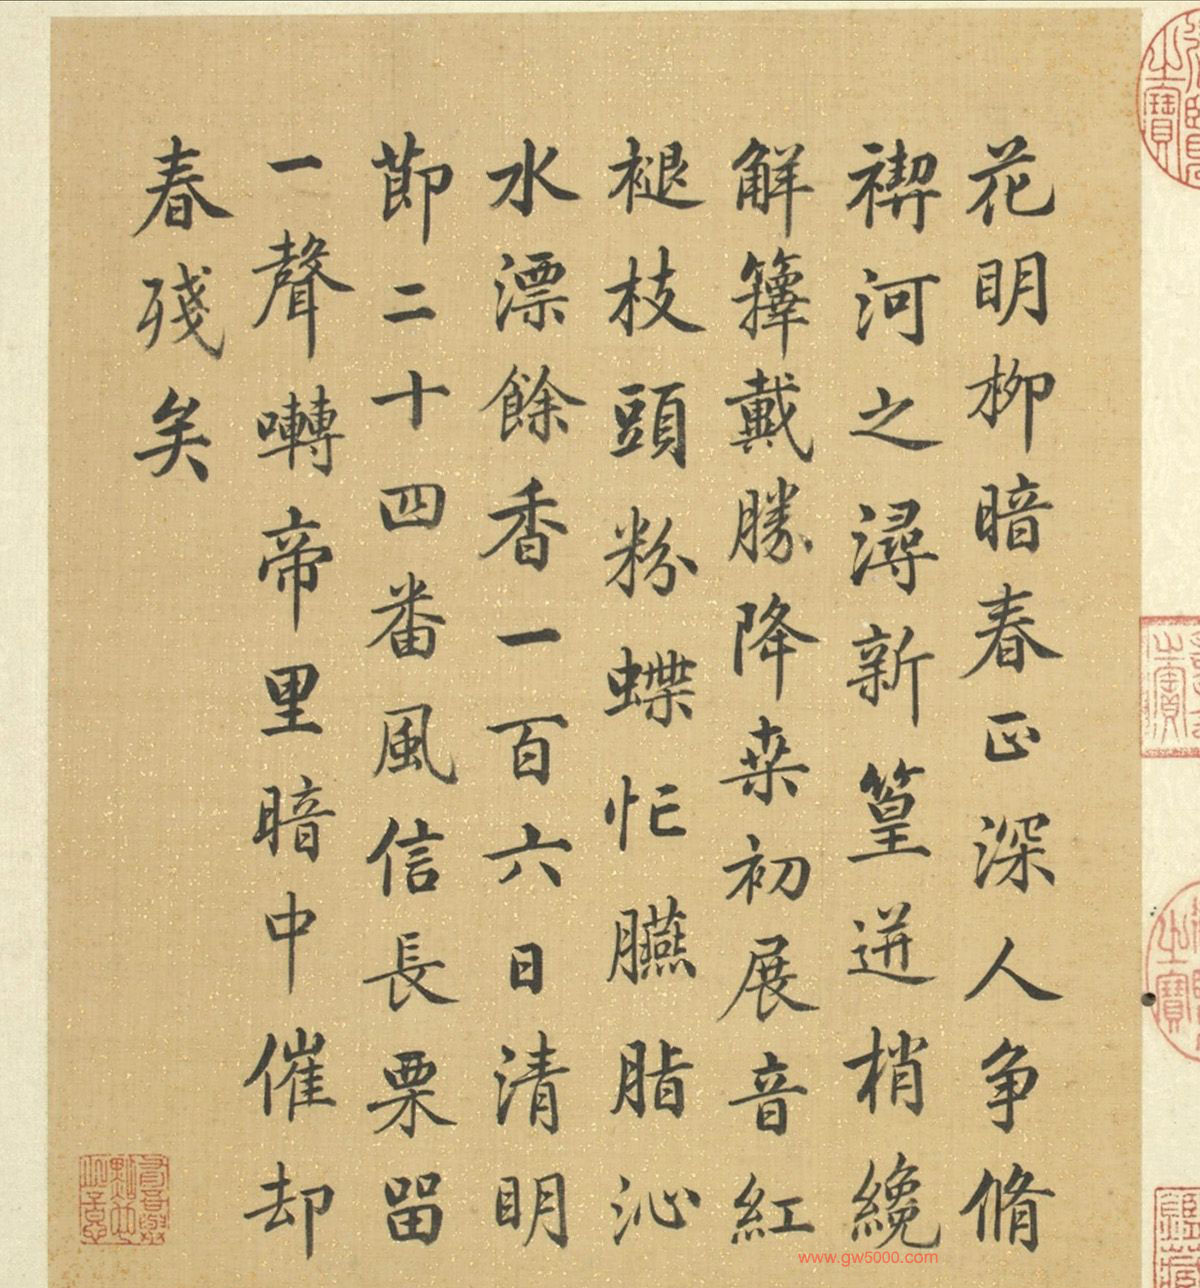 花明柳暗春正深人争脩
禊河之潯新篁迸梢纔
解籜戴勝降桒初展音紅
褪枝頭粉蝶忙臙脂沁
水漂餘香一百六日清明
莭二十四番風信長栗留
一聲囀帝里暗中催却
春殘矣
www.gw5000.com